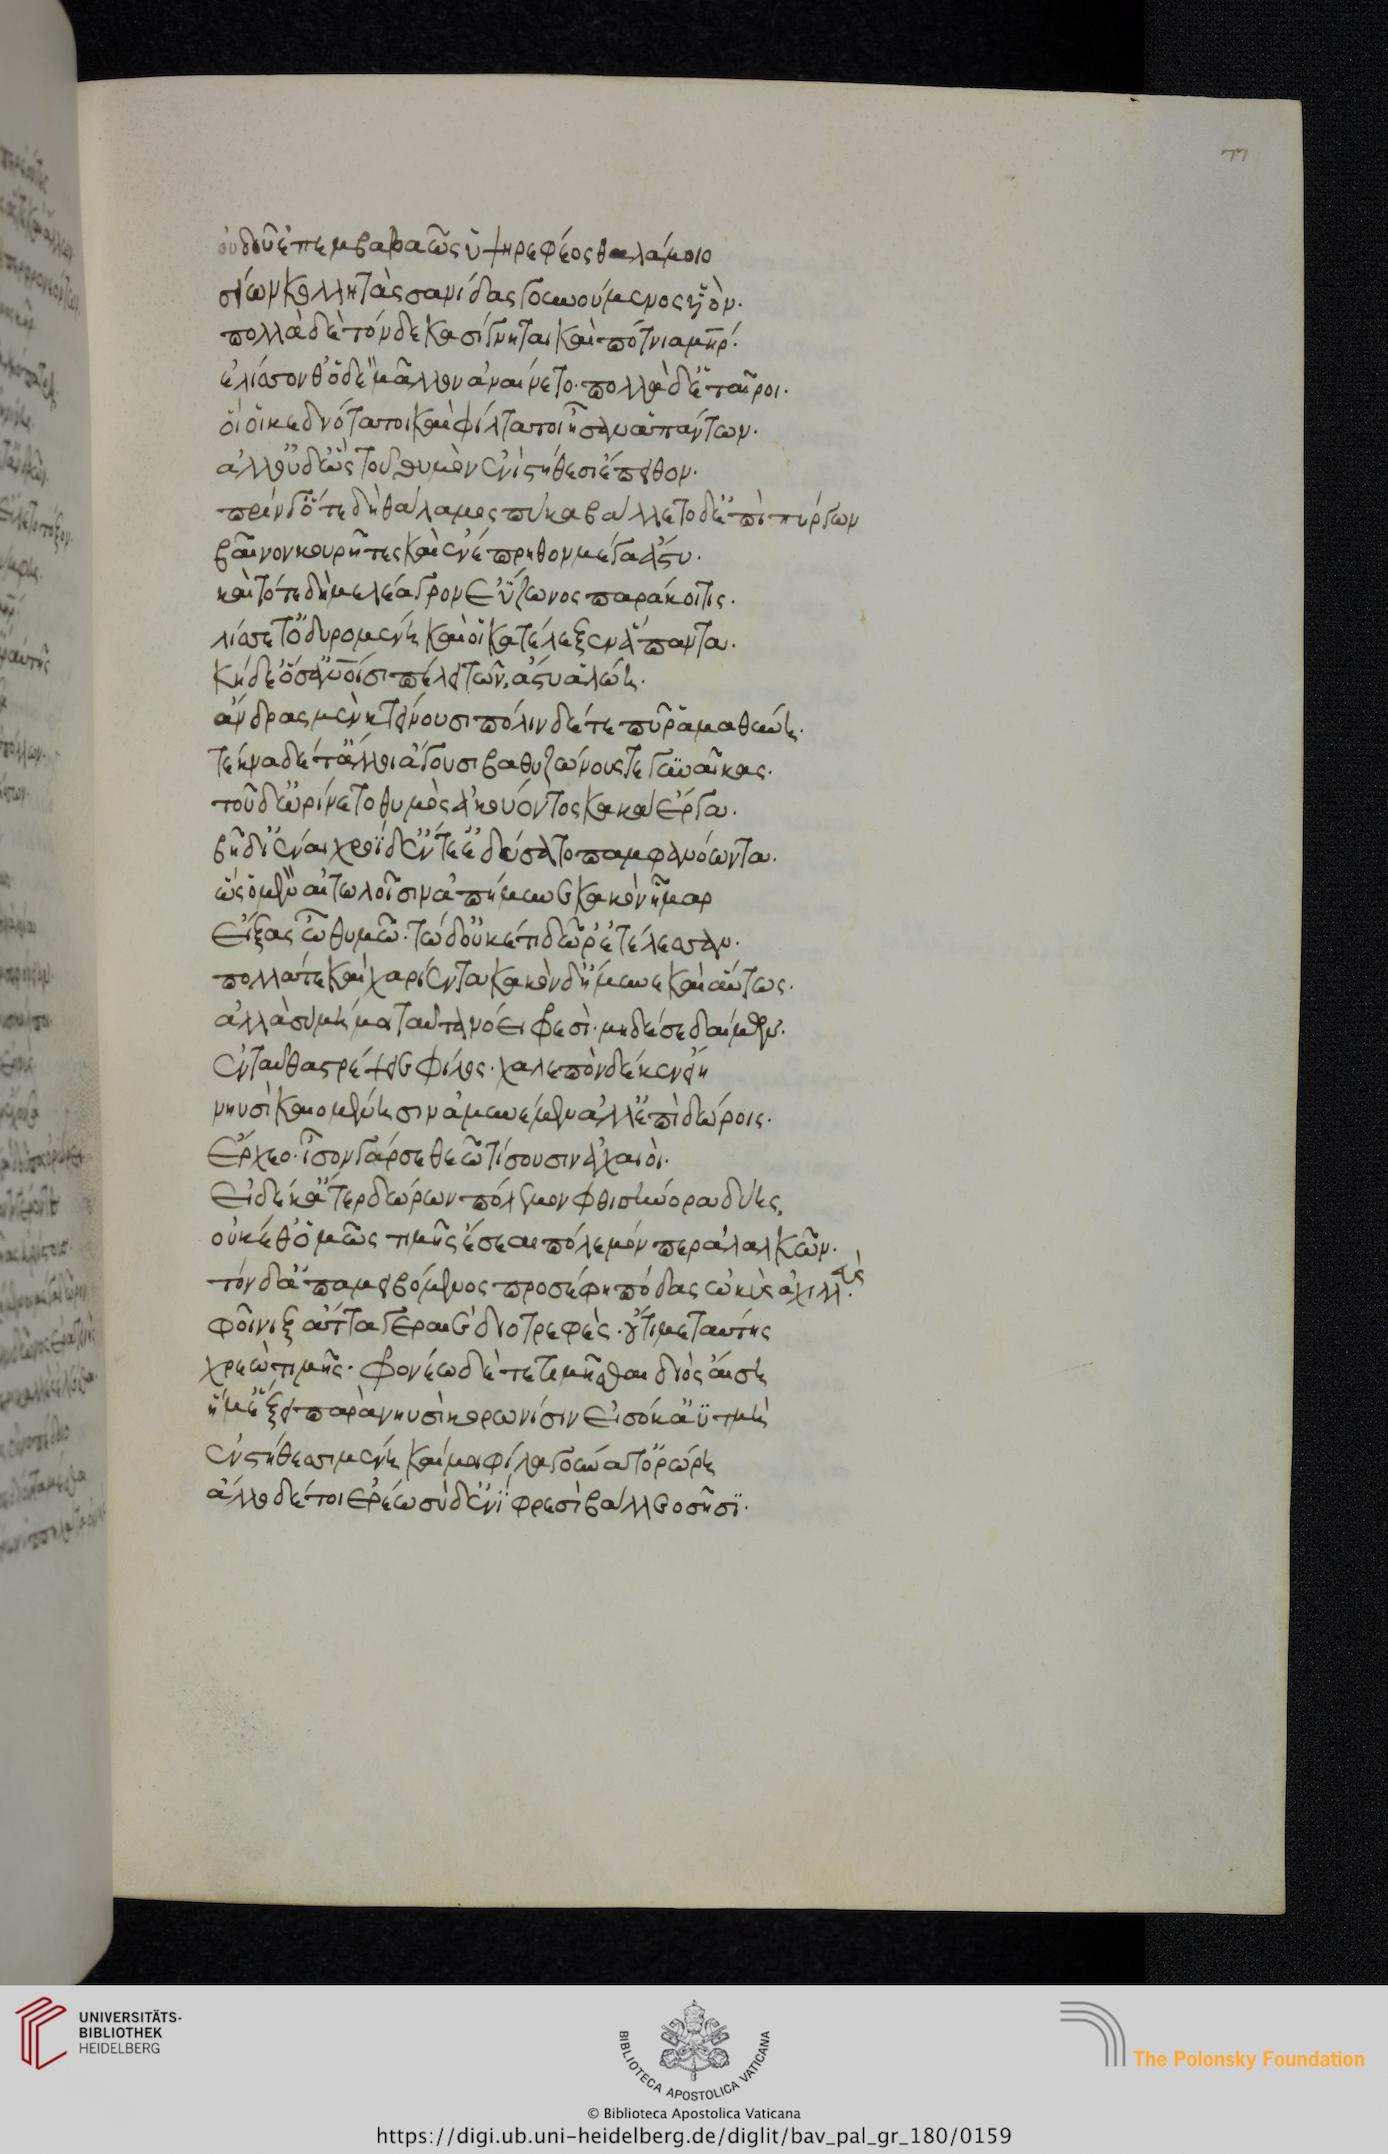 77
οὐδοῦ ἐπεμβαβαὼς ὑψηρεφέος θαλάμοιο
σείων κολλητὰς σανίδας γουνούμενος υἱὸν·
πολλὰ δὲ τόνδε κασίγνηται καὶ πότνια μηρ·
ἐλίσσονθ' ὁ δὲ μᾶλλον ἀναίνετο· πολλὰ δ' ἑταῖροι·
οἵ οἱ κεδνότατοι καὶ φίλτατοι ἦσαν ἁπάντων·
ἀλλ' οὐδ' ὧς τοῦ θυμὸν ἐνὶ στήθεσι ἔπειθον·
πρίν γ' ὅτε δὴ θάλαμος πύκα βάλλετο δ' ἐπὶ πύργων
βαῖνον κουρῆτες καὶ ἐνέπρηθον μέγα ἄστυ·
καὶ τότε δὴ μελέαγρον ἐΰζωνος παράκοιτις·
λίσσετ' ὀδυρομένη καί οἱ κατέλεξεν ἅπαντα·
κήδε' ὅσ' ἀνοίσι πέλει τῶν ἄστυ ἁλώη·
ἄνδρας μὲν κτείνουσι πόλιν δέ τε πῦρ ἀμαθύνει·
τέκνα δέ τ' ἄλλοι ἄγουσι βαθυζώνους τε γυναῖκας·
τοῦ δ' ὠρίνετο θυμὸς ἀκούοντος κακὰ ἔργα·
βῆ δ' ἰέναι χροῒ δ' ἔντε' ἐδύσατο παμφανόωντα·
ὣς ὁ μὲν αἰτωλοῖσιν ἀπήμυνε κακὸν ἦμαρ
εἴξας ᾧ θυμῶ· τῶ δ' οὐκέτι δῶρ' ἐτέλεσσαν·
πολλά τε καὶ χαρίεντα κακὸν δ' ἤμυνε καὶ αὔτως·
ἀλλὰ σὺ μή μα ταῦτα νόει φρεσὶ· μηδέ σε δαίμων·
ἐνταῦθα τρέψειε φίλος· χαλεπὸν δέ κεν εἴη
νηυσὶ καιομένησιν ἀμυνέμεν ἀλλ' ἐπὶ δώροις·
ἔρχεο· ἶσον γάρ σε θεῶ τίσουσιν ἀχαιοὶ·
εἰ δέ κ' ἄτερ δώρων πόλεμον φθισήνορα δύης,
οὐκέθ' ὁμῶς τιμῆς ἔσεαι πόλεμόν περ ἀλαλκῶν·
τὸν δ' ἀπαμειβόμενος προσέφη πόδας ὠκὺς ἀχιλλεὺς·
φοῖνιξ ἄττα γεραιὲ διοτρεφὲς· οὔτι με ταύτης
χρεὼ τιμῆς· φρονέω δὲ τετιμῆσθαι διὸς αἴση
ἥ μ' ἕξει παρὰ νηυσὶ κορωνίσιν εἰσόκ' ἀϋτμὴ
ἐν στήθεσσι μένη καί μοι φίλα γούνατ' ὀρώρη
ἄλλο δέ τοι ἐρέω σὺ δ' ἐνὶ φρεσὶ βάλλεο σῆσϊ·
UNIVERSITÄTS-
BIBLIOTHEK
HEIDELBERG
BIBLIOTECA APOSTOLICA VATICANA
The Polonsky Foundation
© Biblioteca Apostolica Vaticana
https://digi.ub.uni-heidelberg.de/diglit/bav_pal_gr_180/0159